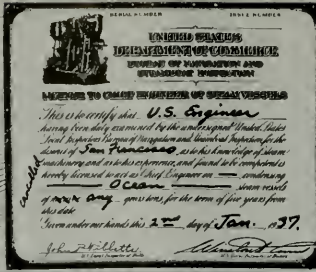 SERIAL NUMBER ISSUE NUMBER
UNITED STATES
DEPARTMENT OF COMMERCE
BUREAU OF NAVIGATION AND
STEAMBOAT INSPECTION
LICENSE TO CHIEF ENGINEER OF STEAM VESSELS
This is to certify that U.S. Engineer
having been duly examined by the undersigned United States
Local Inspectors Bureau of Navigation and Steamboat Inspection, for the
district of San Francisco, as to his knowledge of steam
machinery and as to his experience, and found to be competent is
hereby licensed to act as Chief Engineer on condensing
Ocean steam vessels
of any gross tons, for the term of five years from
this date
Given under our hands this 2nd day of Jan. 1937.
cancelled
John P.
U.S. Local Inspector of Boilers